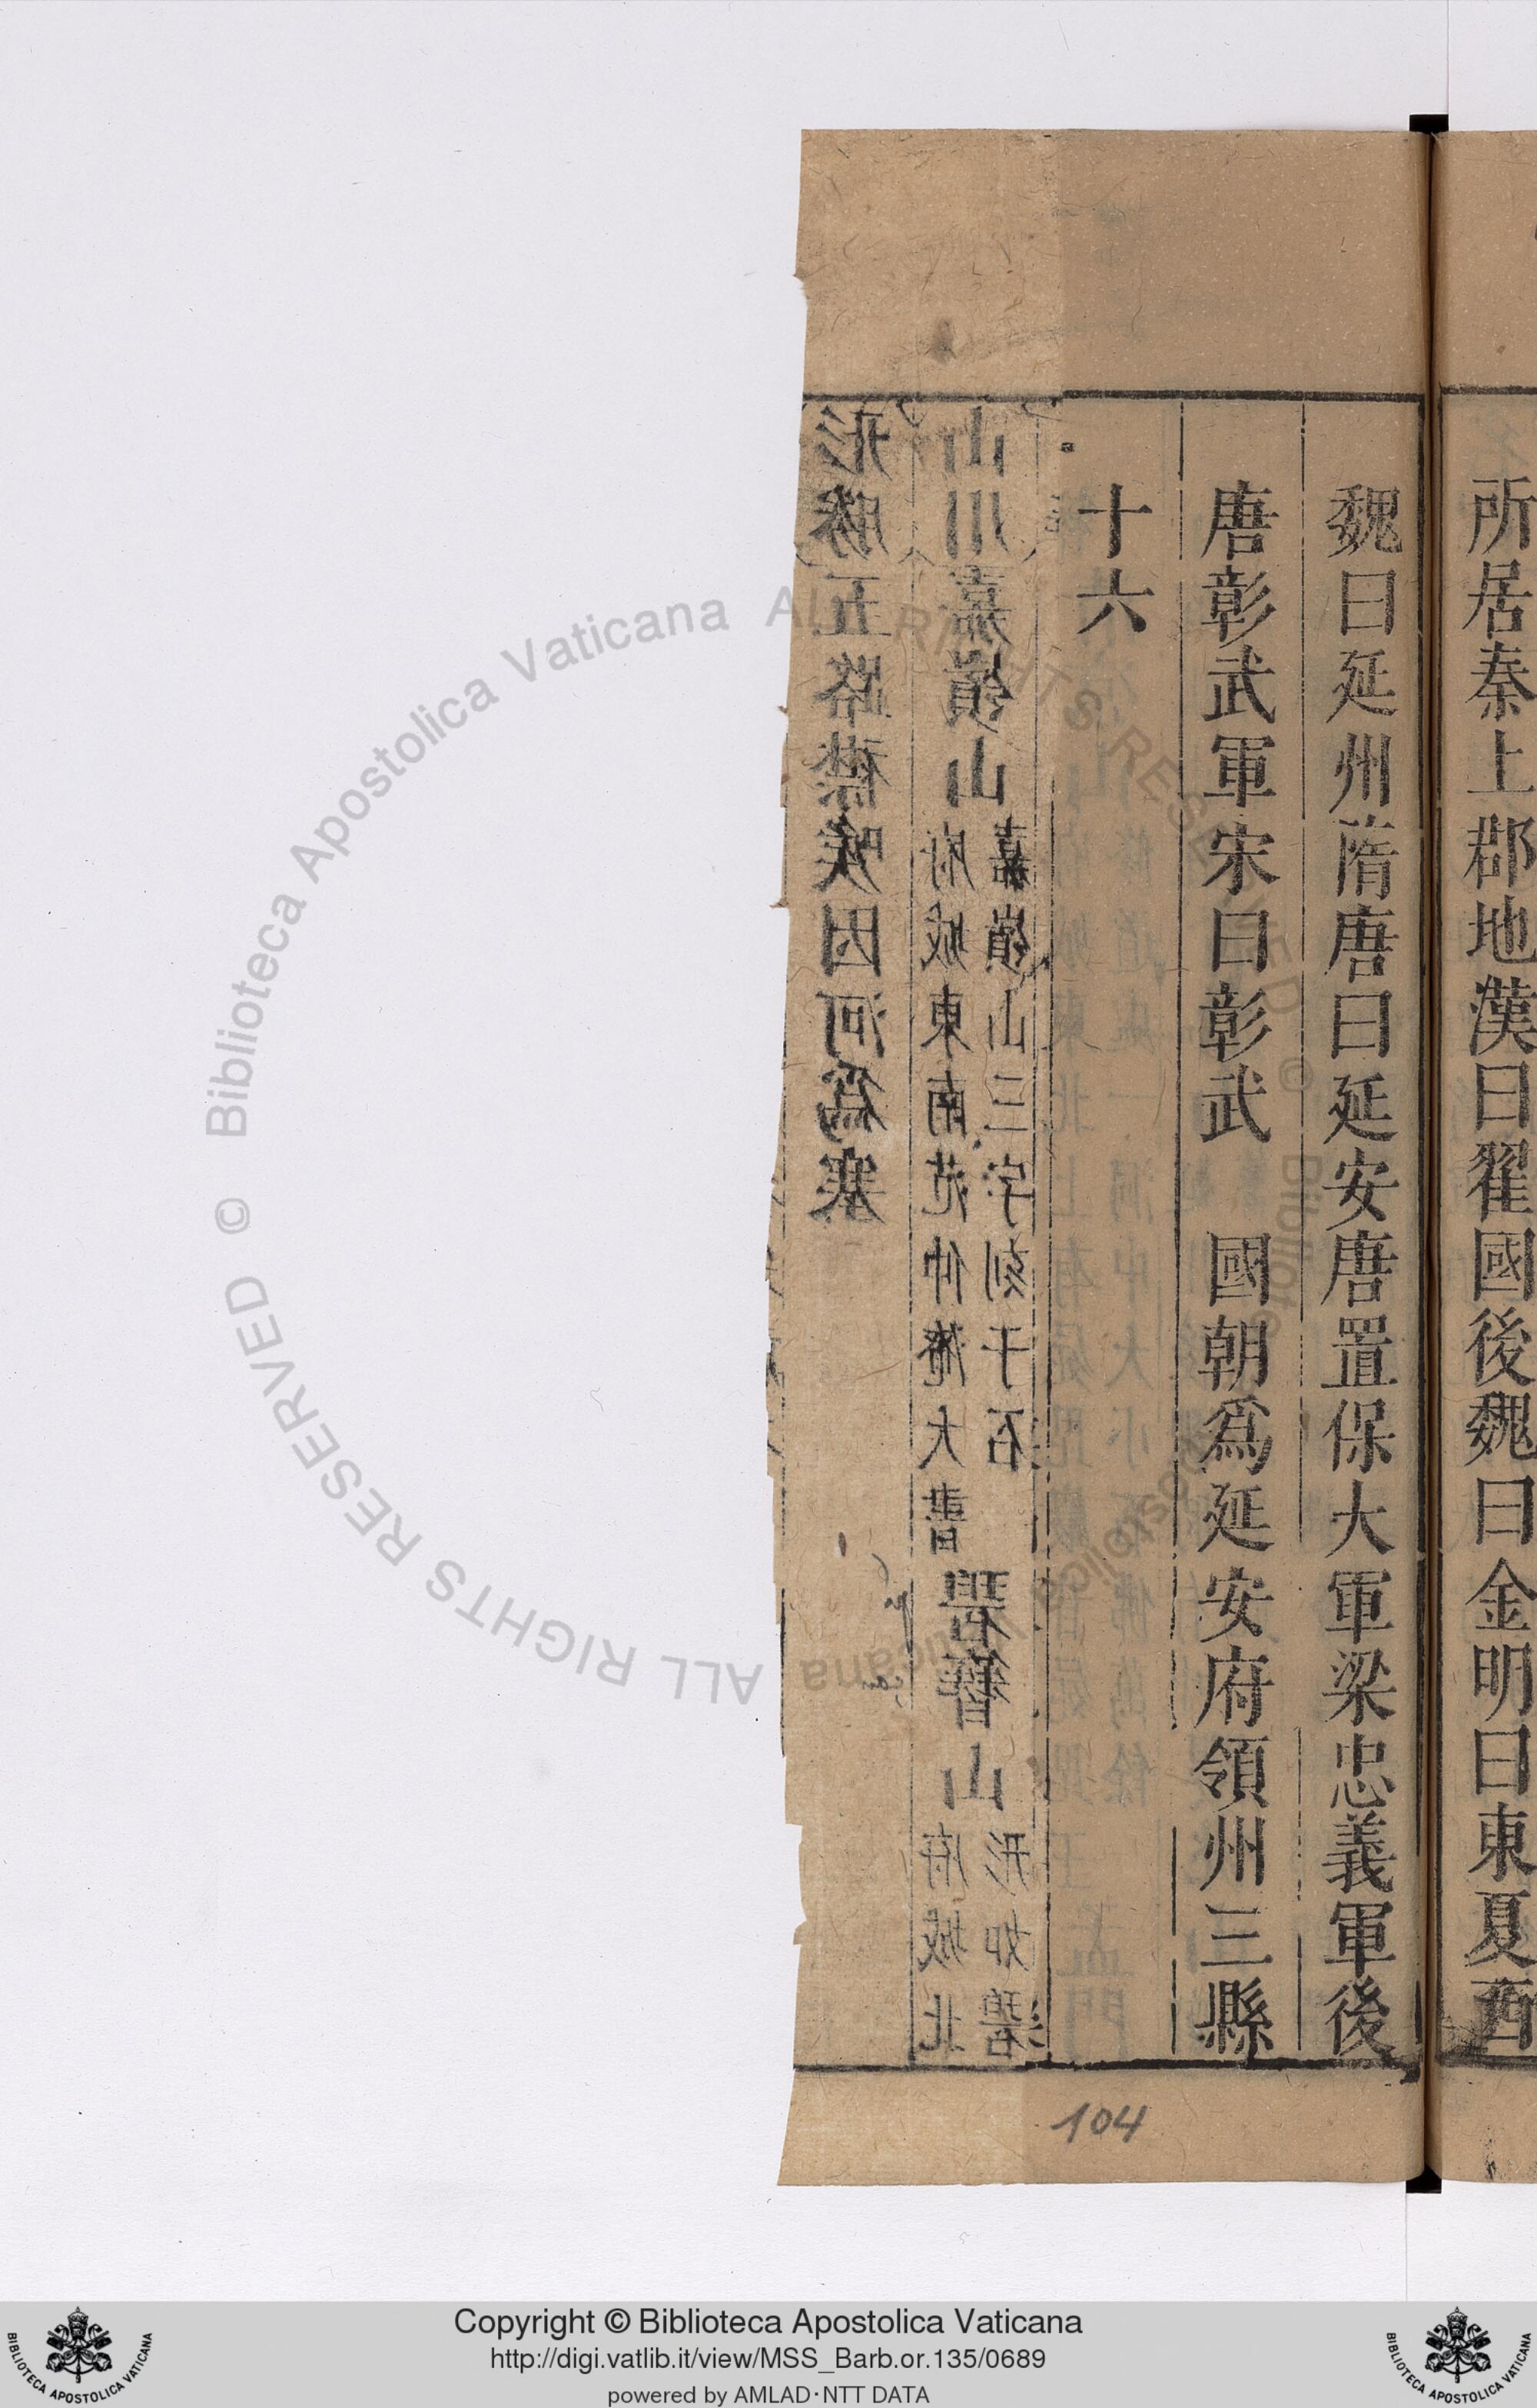 所居秦上郡地漢曰翟國後魏曰金明曰東夏西
魏曰延州隋唐曰延安唐置保大軍梁忠義軍後
唐彰武軍宋曰彰武　國朝爲延安府領州三縣
十六
形勝五路襟喉因河爲塞
山川嘉嶺山
嘉嶺山三字刻于石
府城東南范仲淹大書
山
形如碧
府城北
104
© Biblioteca Apostolica Vaticana ALL RIGHTS RESERVED © Biblioteca Apostolica Vaticana ALL RIGHTS RESERVED
Copyright © Biblioteca Apostolica Vaticana
http://digi.vatlib.it/view/MSS_Barb.or.135/0689
powered by AMLAD·NTT DATA
BIBLIOTECA APOSTOLICA VATICANA
BIBLIOTECA APOSTOLICA VATICANA